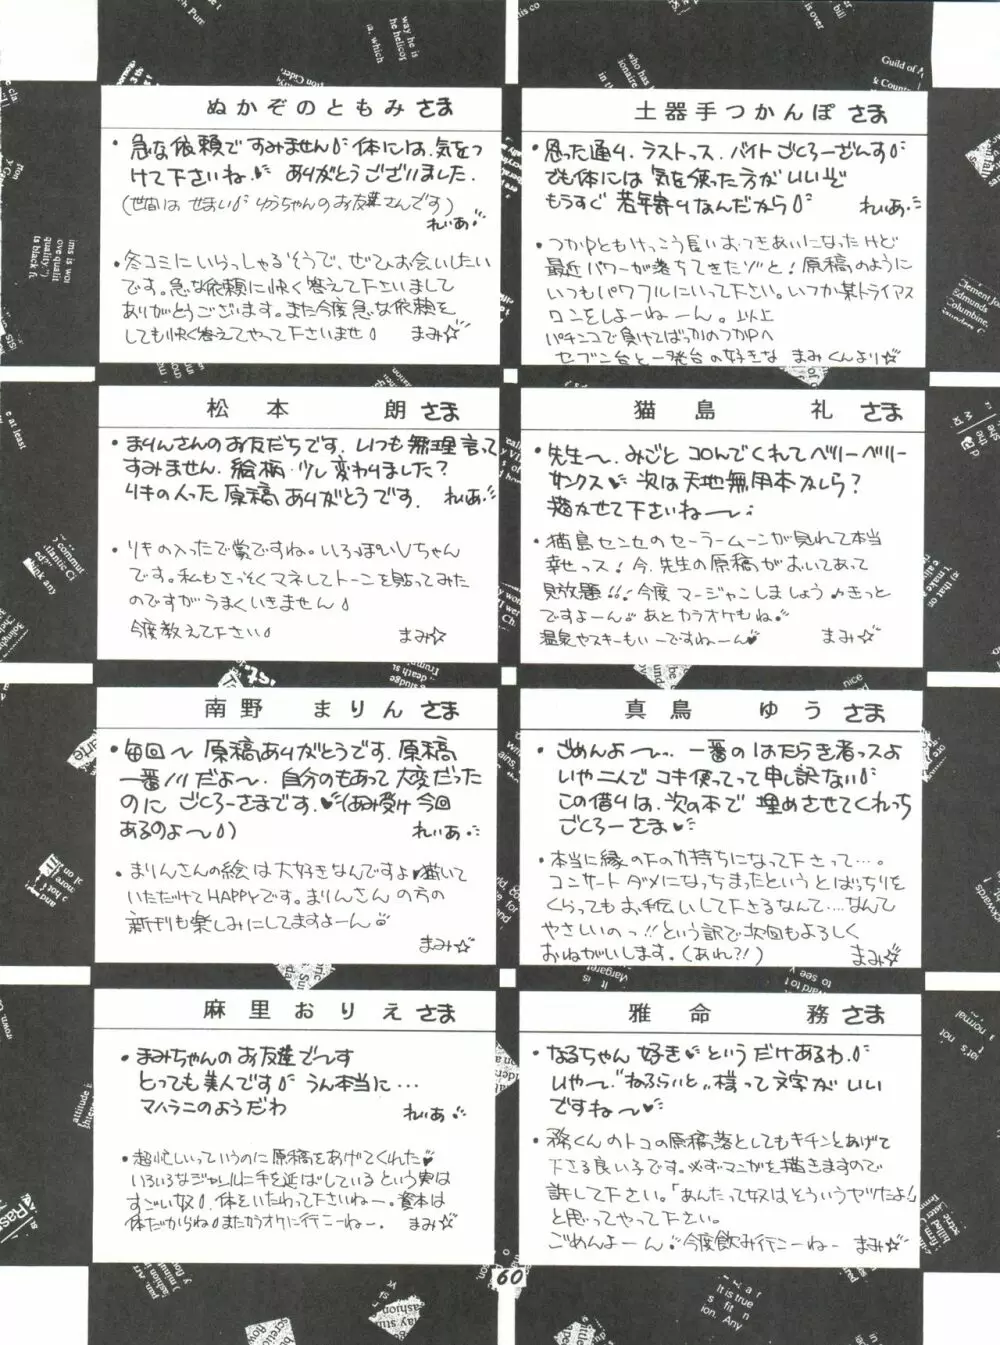 ぬかぞのともみさま
・急な依頼ですみません 体には、気をつ
けて下さいね♥ ありがとうございました。
(世間は せまい ゆうちゃんのお友達さんです)
れいあ
・冬コミにいらっしゃるそうで、ぜひお会いしたい
です。急な依頼に快く答えて下さいまして
ありがとうございます。また今度急な依頼を
しても快く答えてやって下さいませ まみ☆
土器手つかんぽさま
・思った通り、ラストっス、バイトごくろーざんす
でも体には気を使った方がいいぞ
もうすぐ若年寄りなんだから れいあ
・つかPともけっこう長いおつきあいになったけど
最近パワーが落ちてきたゾと! 原稿のように
いつもパワフルにいって下さい。いつか某トライアス
ロンをしよーねーん。以上
パチンコで負けてばっかのつかPへ
セブン台と一発台の好きな まみくんより☆
松本 朗さま
・まりんさんのお友だちです。いつも無理言って
すみません。絵柄、少し変わりました?
リキの入った原稿ありがとうです。 れいあ
・リキの入ったで賞ですね。いろっぽいVちゃん
です。私もさっそくマネしてトーンを貼ってみた
のですがうまくいきません
今度教えて下さい まみ☆
猫島 礼さま
・先生〜、みごとコロんでくれてベリーベリー
サンクス♥ 次は天地無用本かしら?
描かせて下さいね〜
・猫島センセのセーラームーンが見れて本当
幸せっス! 今、先生の原稿がおいてあって
見放題!! 今度マージャンしましょう♪きっと
ですよーん。あとカラオケもね
温泉やスキーもいーですねーん♥ まみ☆
南野 まりんさま
・毎回〜 原稿ありがとうです。原稿
一番ノリだよ〜、自分のもあって大変だった
のに ごくろーさまです。♥(あみ受け今回
あるのよ〜) れいあ
・まりんさんの絵は大好きなんですよ♥描いて
いただけてHAPPYです。まりんさんの方の
新刊も楽しみにしてますよーん
まみ☆
真鳥 ゆうさま
・ごめんよ〜、一番のはたらき者っスよ
いや二人でコキ使ってって申し訳ない
この借りは、次の本で埋めさせてくれっち
ごくろーさま♥
・本当に縁の下の力持ちになって下さって…。
コンサートダメになっちまったというとばっちりを
くらってもお手伝いして下さるなんて…なんて
やさしいのっ!! という訳で次回もよろしく
おねがいします。(あれ?!) まみ☆
麻里おりえさま
・まみちゃんのお友達で〜す
とっても美人です うん本当に…
マハラニのようだわ れいあ
・超忙しいっていうのに原稿をあげてくれた♥
いろいろなジャンルに手を延ばしているという実は
すごい奴 体をいたわって下さいねー。資本は
体だからね またカラオケに行こーねー。 まみ☆
雅命 務さま
・なるちゃん好き♥というだけあるわ。
いや〜、"ねるらいと"様って文字がいい
ですね〜♥
・務くんのトコの原稿落としてもキチンとあげて
下さる良い子です。必ずマンガを描きますので
許して下さい。「あんたって奴はそういうヤツだよ」
と思ってやって下さい。
ごめんよーん 今度飲み行こーねー まみ☆
60